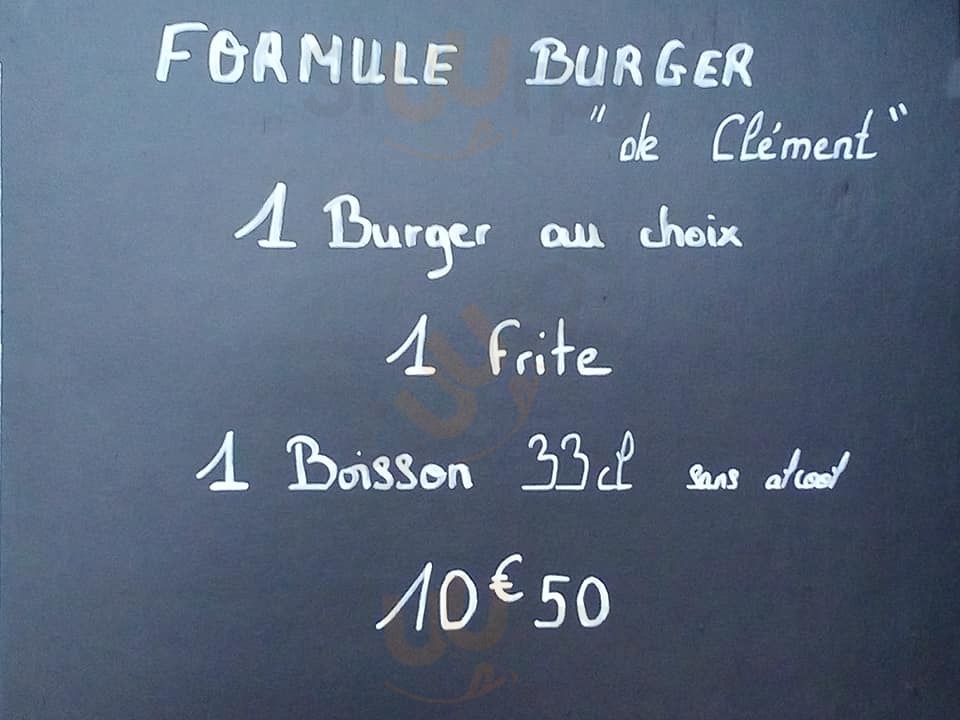 FORMULE BURGER
"de Clément"
1 Burger au choix
1 Frite
1 Boisson 33cl sans alcool
10€50